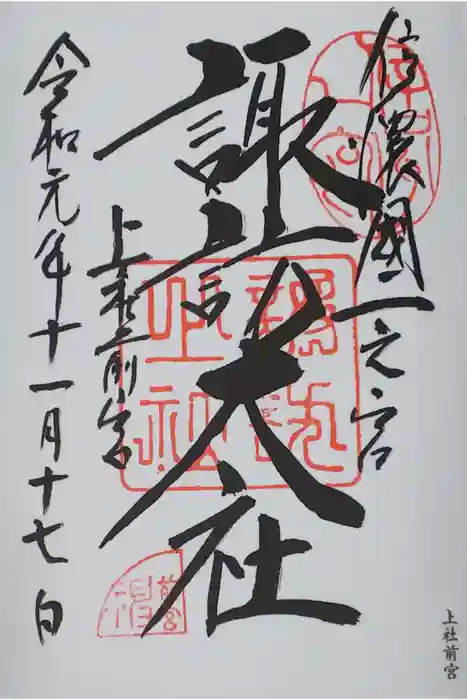 信濃國一之宮
諏訪大社
上社前宮
令和元年十一月十七日
前宮
上社前宮